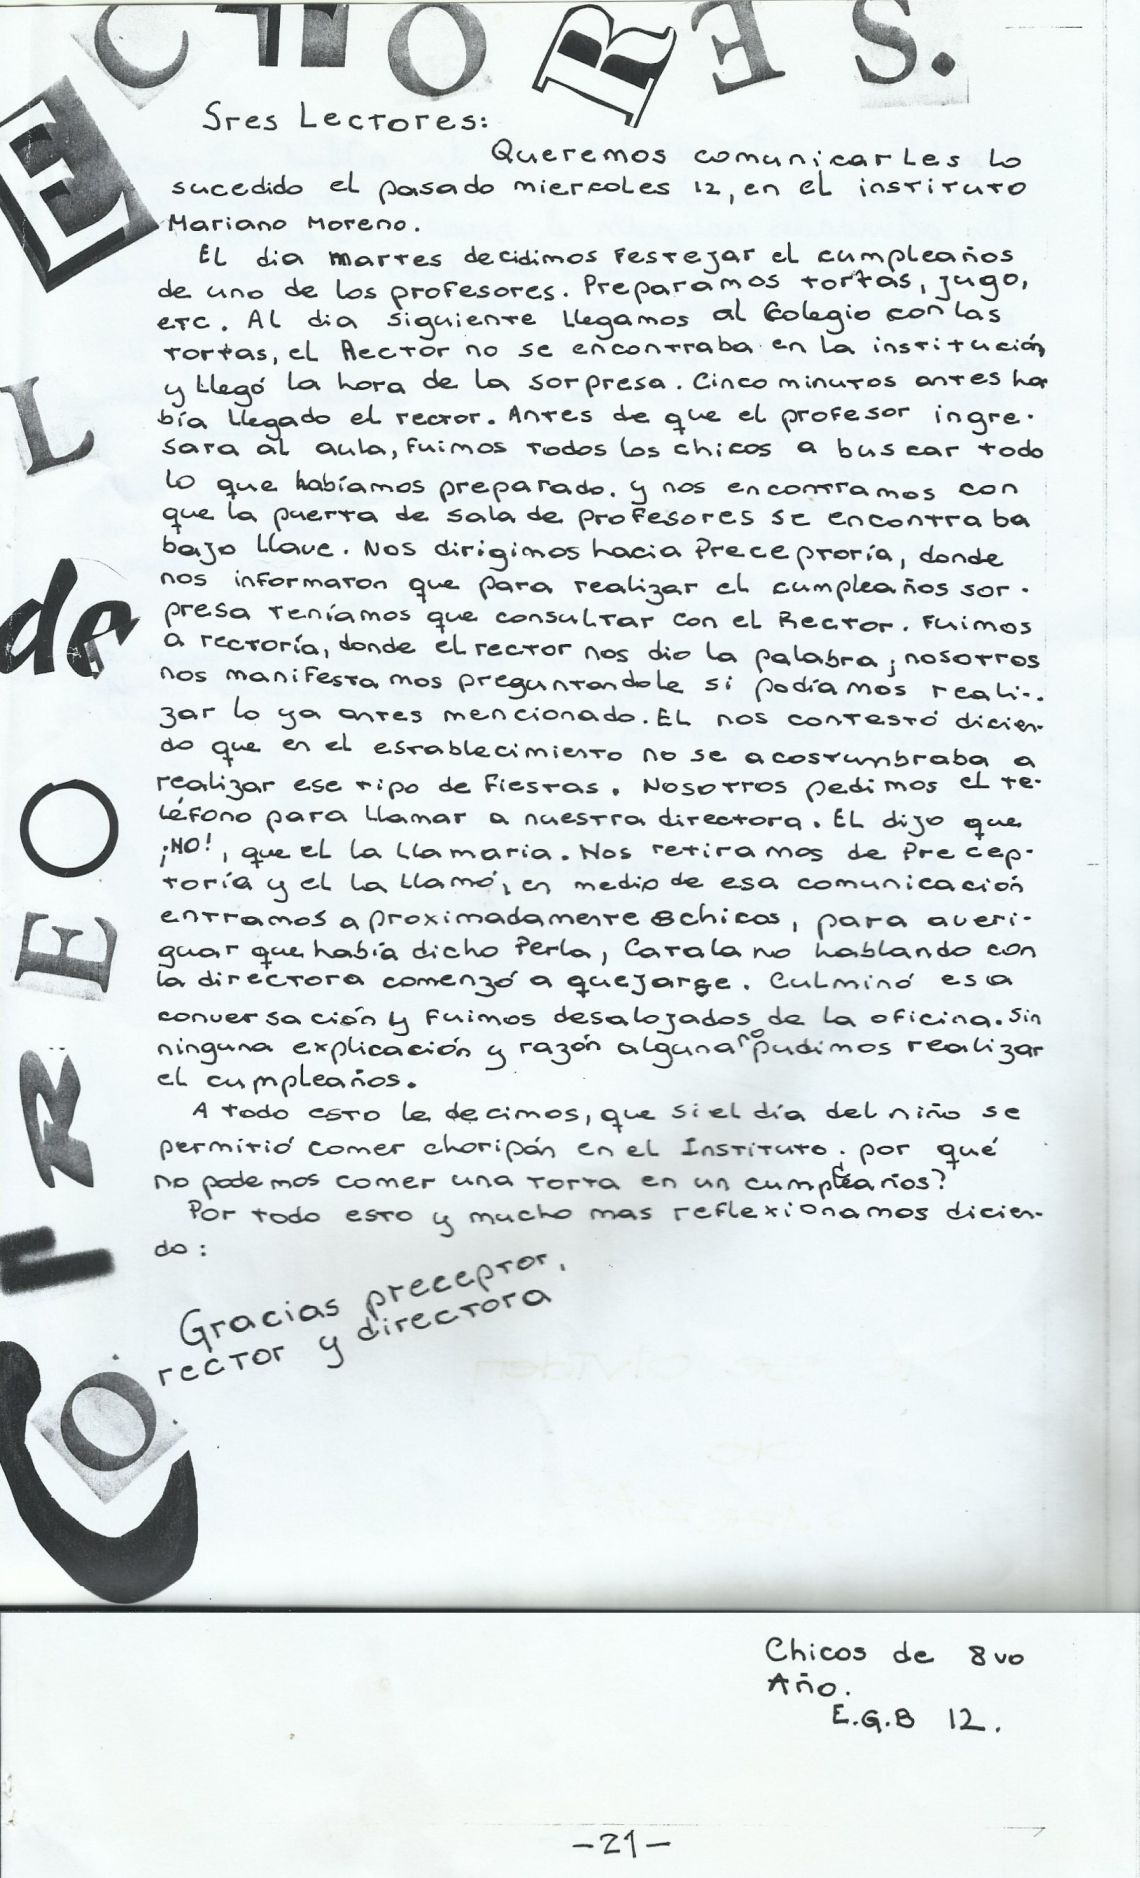 CORREO de LECTORES.
Sres Lectores:
Queremos comunicarles lo
sucedido el pasado miercoles 12, en el instituto
Mariano Moreno.
El dia martes decidimos festejar el cumpleaños
de uno de los profesores. Preparamos tortas, jugo,
etc. Al dia siguiente llegamos al Colegio con las
tortas, el Rector no se encontraba en la institución
y llegó la hora de la sorpresa. Cinco minutos antes ha
bía llegado el rector. Antes de que el profesor ingre-
sara al aula, fuimos todos los chicos a buscar todo
lo que habíamos preparado. y nos encontramos con
que la puerta de sala de profesores se encontraba
bajo llave. Nos dirigimos hacia Preceptoría, donde
nos informaron que para realizar el cumpleaños sor-
presa teníamos que consultar con el Rector. Fuimos
a rectoría, donde el rector nos dio la palabra; nosotros
nos manifestamos preguntandole si podíamos reali-
zar lo ya antes mencionado. El nos contestó dicien-
do que en el establecimiento no se acostumbraba a
realizar ese tipo de fiestas. Nosotros pedimos el te-
léfono para llamar a nuestra directora. El dijo que
¡NO!, que el la llamaria. Nos retiramos de Precep-
toría y el la llamó, en medio de esa comunicación
entramos aproximadamente 8 chicos, para averi-
guar que había dicho Perla, Catalano hablando con
la directora comenzó a quejarse. Culminó esa
conversación y fuimos desalojados de la oficina. Sin
ninguna explicación y razón alguna no pudimos realizar
el cumpleaños.
A todo esto le decimos, que si el día del niño se
permitió comer choripán en el Instituto ¿por qué
no podemos comer una torta en un cumpleaños?
Por todo esto y mucho mas reflexionamos dicien-
do:
Gracias preceptor,
rector y directora
Chicos de 8vo
Año.
E.G.B 12.
-21-